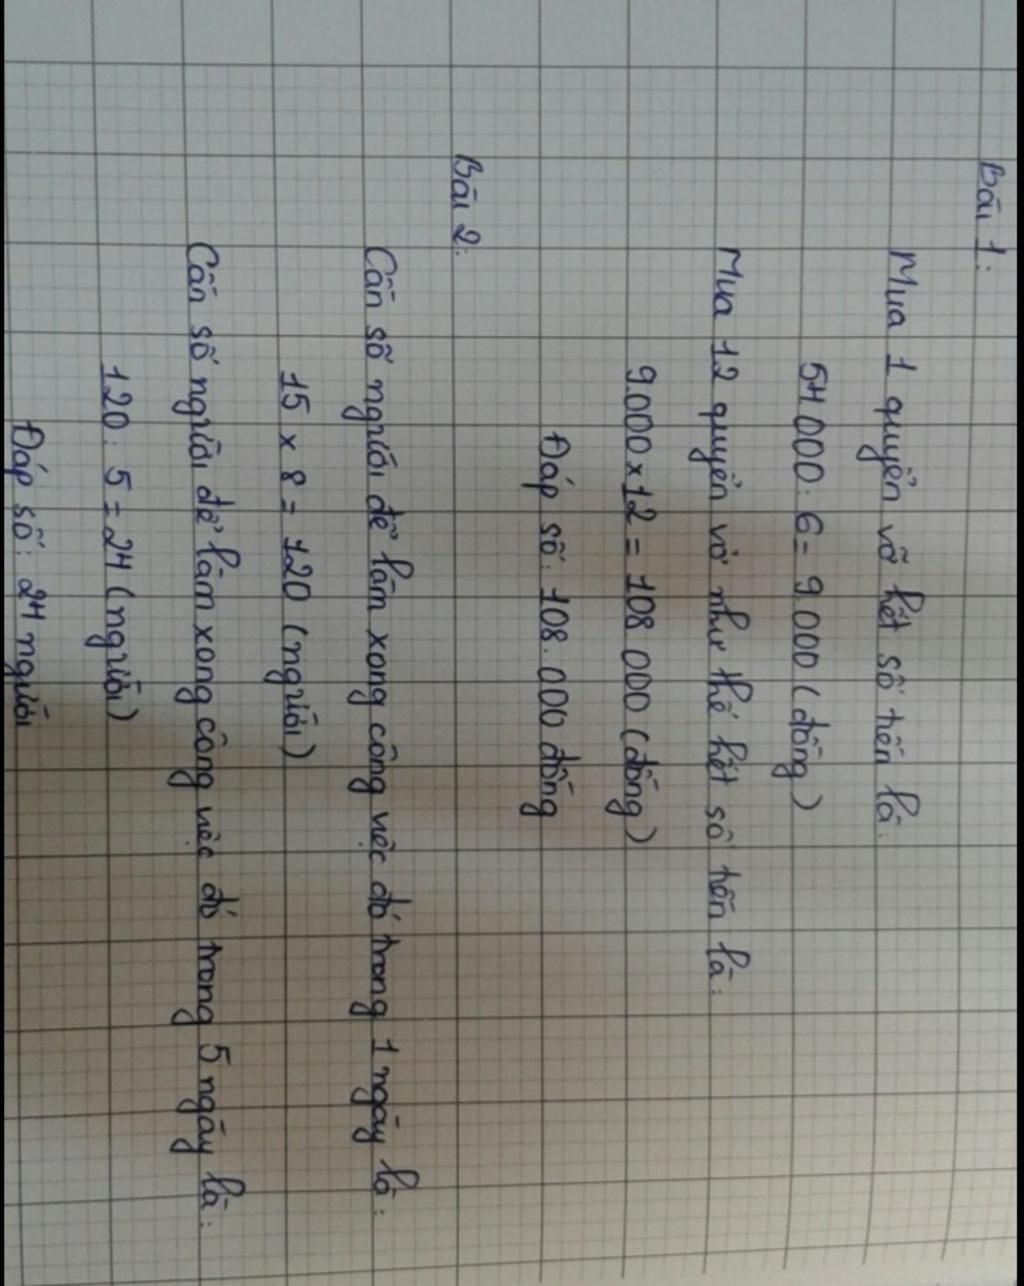 Bài 1:
Mua 1 quyển vở hết số tiền là:
54.000 : 6 = 9.000 (đồng)
Mua 12 quyển vở như thế hết số tiền là:
9.000 x 12 = 108.000 (đồng)
Đáp số: 108.000 đồng
Bài 2:
Cần số người để làm xong công việc đó trong 1 ngày là:
15 x 8 = 120 (người)
Cần số người để làm xong công việc đó trong 5 ngày là:
120 : 5 = 24 (người)
Đáp số: 24 người